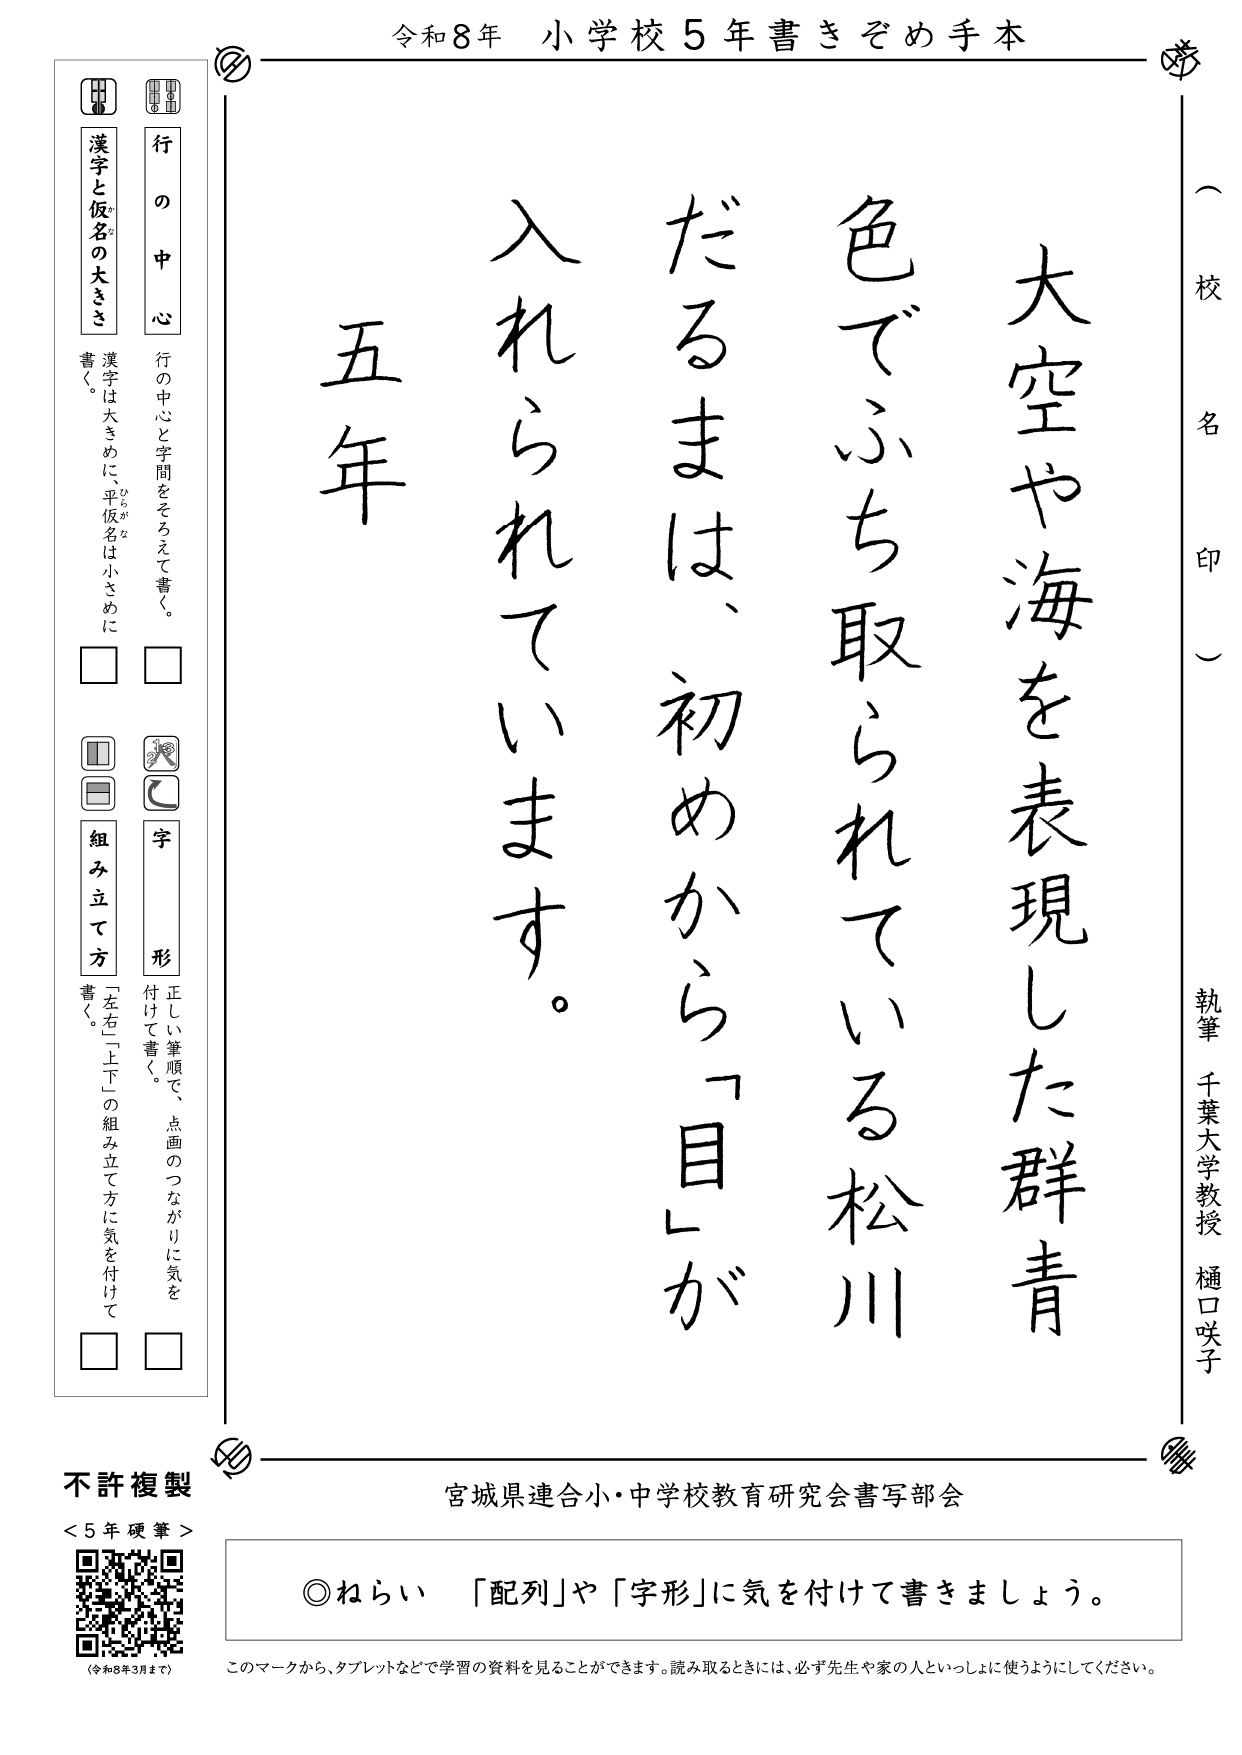 令和8年 小学校5年書きぞめ手本
(校名印)
執筆 千葉大学教授 樋口咲子
大空や海を表現した群青
色でふち取られている松川
だるまは、初めから「目」が
入れられています。
五年
行の中心
行の中心と字間をそろえて書く。
漢字と仮名の大きさ
かな
漢字は大きめに、平仮名は小さめに
ひらがな
書く。
字形
正しい筆順で、点画のつながりに気を
付けて書く。
組み立て方
「左右」「上下」の組み立て方に気を付けて
書く。
宮城県連合小・中学校教育研究会書写部会
不許複製
<5年硬筆>
(令和8年3月まで)
◎ねらい 「配列」や「字形」に気を付けて書きましょう。
このマークから、タブレットなどで学習の資料を見ることができます。読み取るときには、必ず先生や家の人といっしょに使うようにしてください。